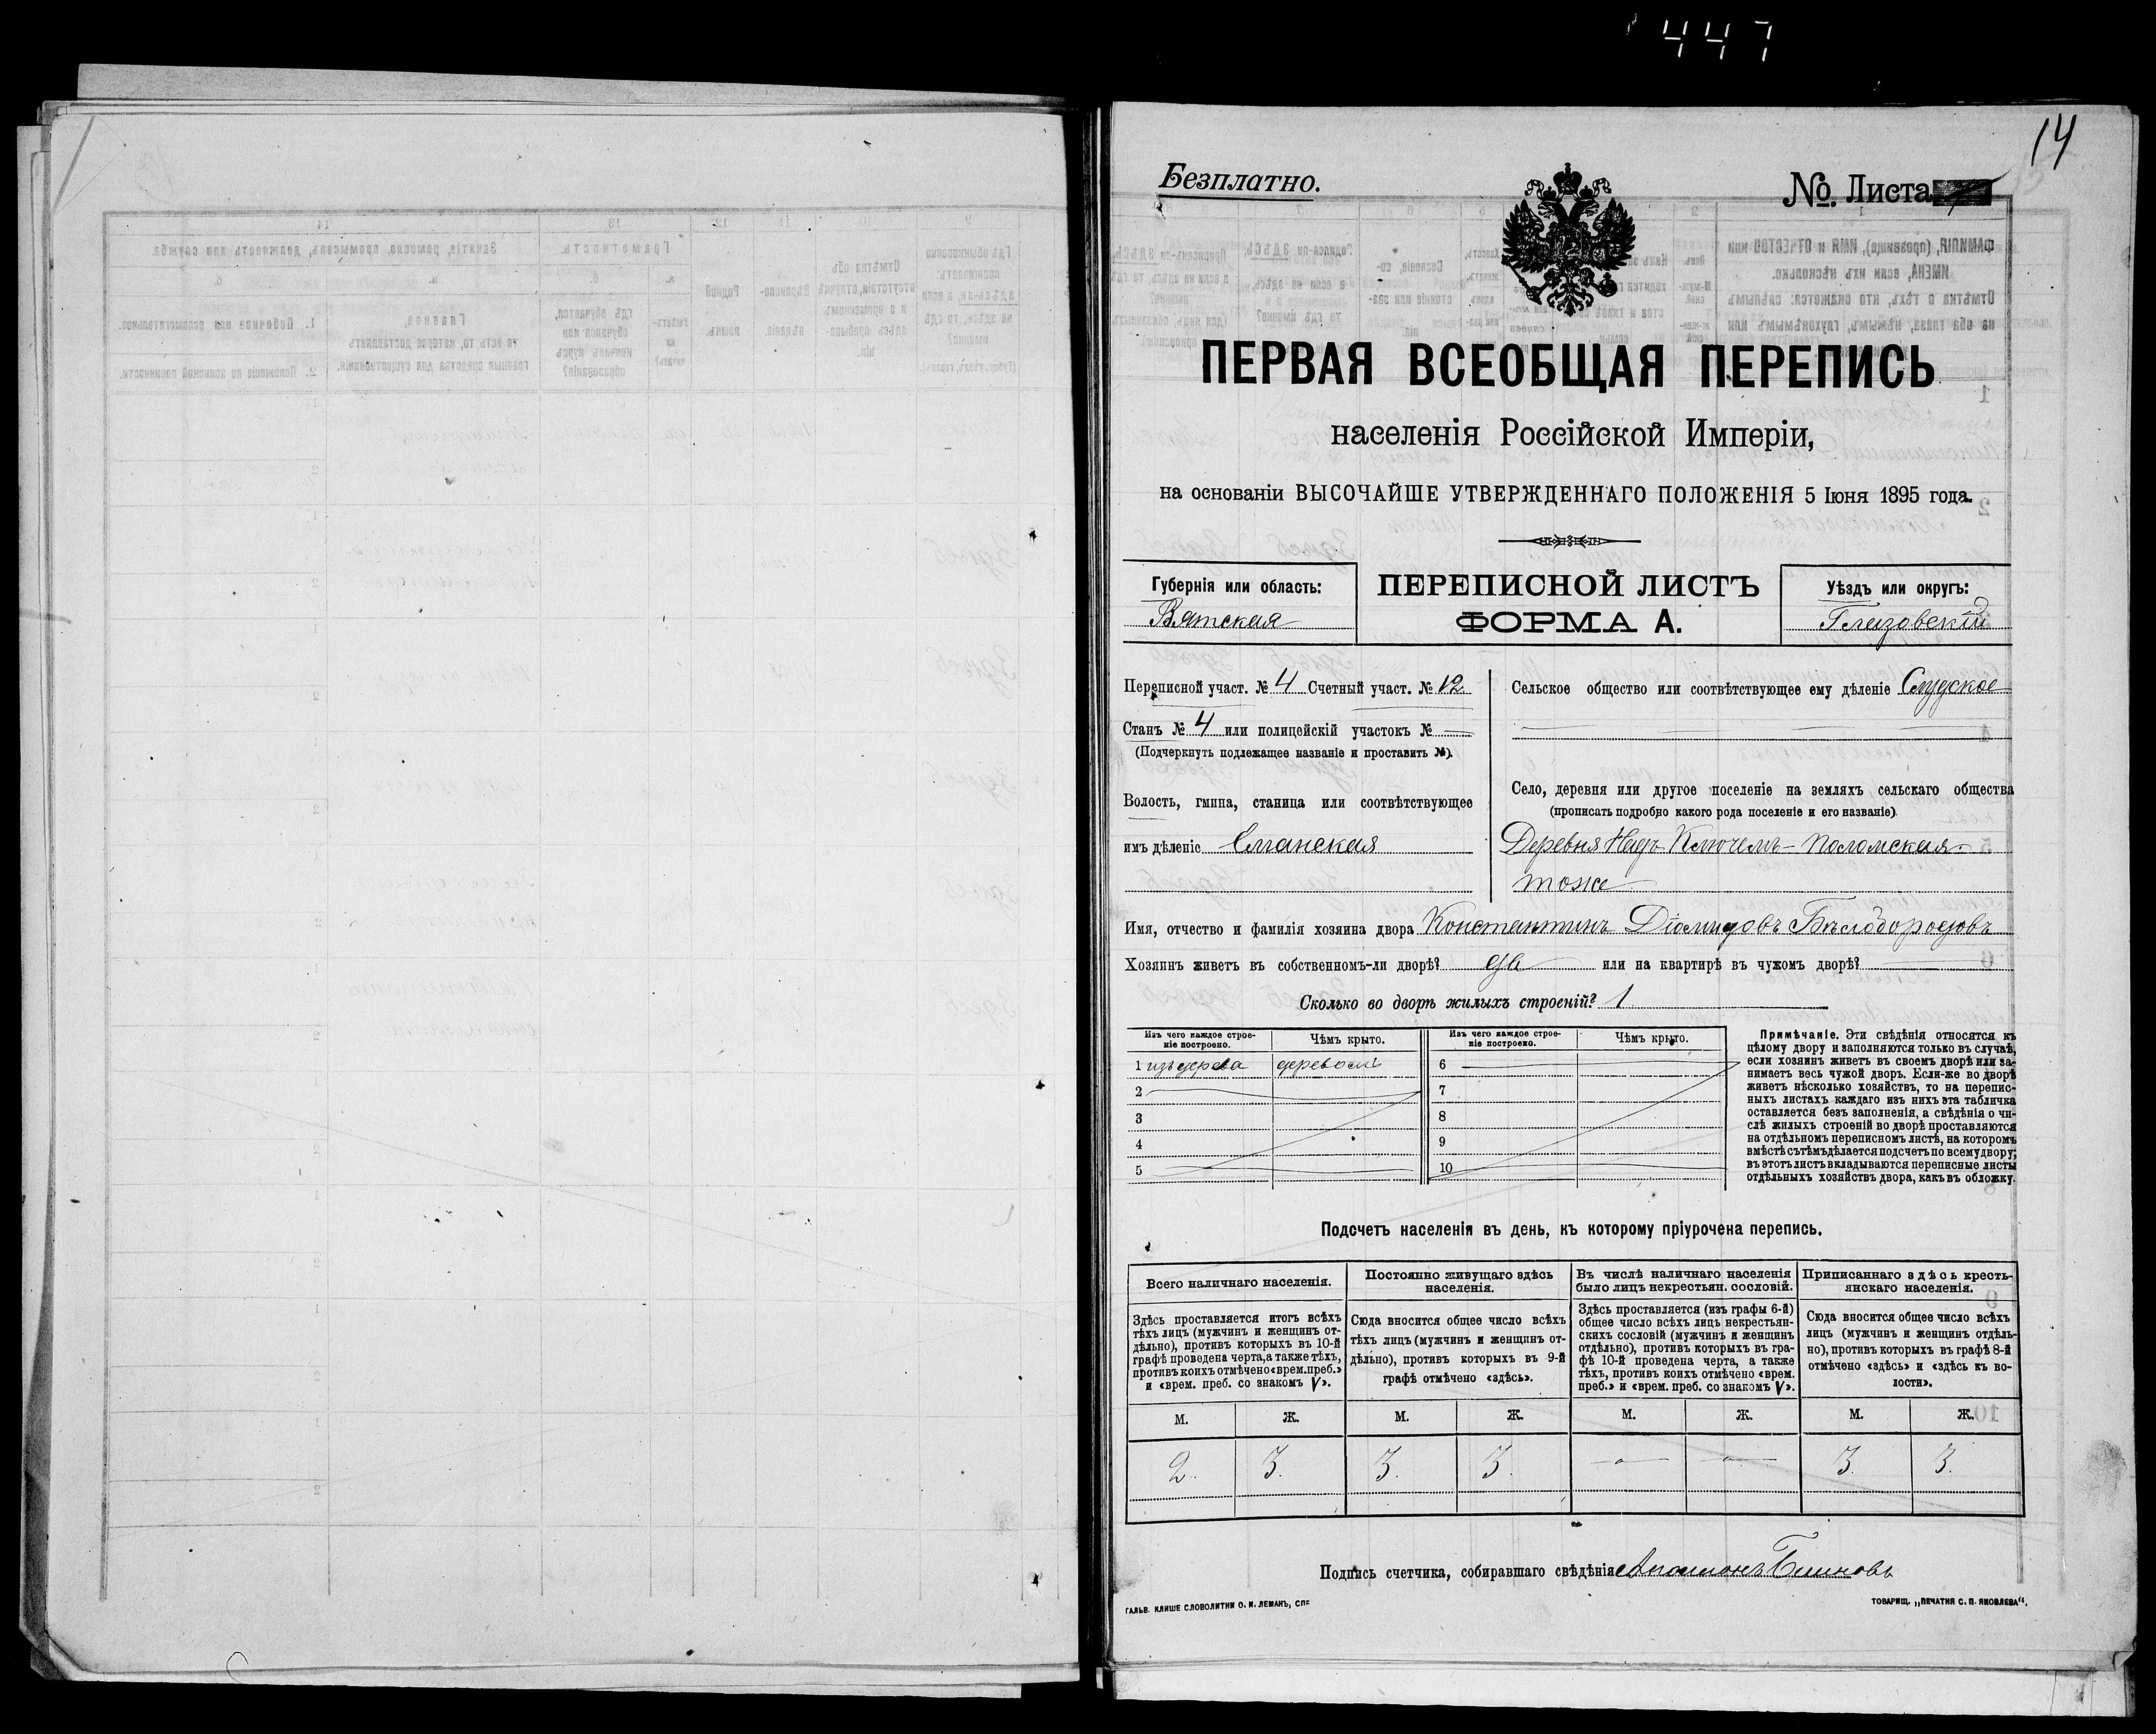 447
14
Безплатно.
№. Листа
ПЕРВАЯ ВСЕОБЩАЯ ПЕРЕПИСЬ
населенія Россійской Имперіи,
на основаніи ВЫСОЧАЙШЕ УТВЕРЖДЕННАГО ПОЛОЖЕНІЯ 5 Іюня 1895 года.
Губернія или область:
Вятская
ПЕРЕПИСНОЙ ЛИСТЪ
ФОРМА А.
Уѣздъ или округъ:
Глазовскій
Переписной участ. № 4 Счетный участ. № 12
Станъ № 4 или полицейскій участокъ № —
(Подчеркнуть подлежащее названіе и проставить №).
Волость, гмина, станица или соотвѣтствующее
имъ дѣленіе Еланская
Сельское общество или соотвѣтствующее ему дѣленіе Слудское
Село, деревня или другое поселеніе на земляхъ сельскаго общества
(прописать подробно какого рода поселеніе и его названіе).
Деревня Надъ Ключемъ - Поломская
тоже
Имя, отчество и фамилія хозяина двора Константинъ Діомидовъ Бѣлобородовъ
Хозяинъ живетъ въ собственномъ-ли дворѣ? да или на квартирѣ въ чужомъ дворѣ? —
Сколько во дворѣ жилыхъ строеній? 1
Изъ чего каждое строе-
ніе построено.
Чѣмъ крыто.
Изъ чего каждое строе-
ніе построено.
Чѣмъ крыто.
1 изъ дерева деревомъ 6
2 7
3 8
4 9
5 10
Примѣчаніе. Эти свѣдѣнія относятся къ
цѣлому двору и заполняются только въ случаѣ,
если хозяинъ живетъ въ своемъ дворѣ или за-
нимаетъ весь чужой дворъ. Если-же во дворѣ
живетъ нѣсколько хозяйствъ, то на перепис-
ныхъ листахъ каждаго изъ нихъ эта табличка
оставляется безъ заполненія, а свѣдѣнія о чи-
слѣ жилыхъ строеній во дворѣ проставляются
на отдѣльномъ переписномъ листѣ, на которомъ
вмѣстѣ съ тѣмъ дѣлается подсчетъ по всему двору;
въ этотъ листъ вкладываются переписные листы
отдѣльныхъ хозяйствъ двора, какъ въ обложку.
Подсчетъ населенія въ день, къ которому пріурочена перепись.
Всего наличнаго населенія.
Здѣсь проставляется итогъ всѣхъ
тѣхъ лицъ (мужчинъ и женщинъ от-
дѣльно), противъ которыхъ въ 10-й
графѣ проведена черта, а также тѣхъ,
противъ коихъ отмѣчено «врем. преб.»
и «врем. преб. со знакомъ V».
Постоянно живущаго здѣсь
населенія.
Сюда вносится общее число всѣхъ
тѣхъ лицъ (мужчинъ и женщинъ от-
дѣльно), противъ которыхъ въ 9-й
графѣ отмѣчено «здѣсь».
Въ числѣ наличнаго населенія
было лицъ некрестьян. сословій.
Здѣсь проставляется (изъ графы 6-й)
общее число всѣхъ лицъ некрестьян-
скихъ сословій (мужчинъ и женщинъ
отдѣльно), противъ которыхъ въ гра-
фѣ 10-й проведена черта, а также
тѣхъ, противъ коихъ отмѣчено «врем.
преб.» и «врем. преб. со знакомъ V».
Приписаннаго здѣсь кресть-
янскаго населенія.
Сюда вносится общее число всѣхъ
лицъ (мужчинъ и женщинъ отдѣль-
но), противъ которыхъ въ графѣ 8-й
отмѣчено «здѣсь» и «здѣсь къ во-
лости».
М. Ж. М. Ж. М. Ж. М. Ж.
2. 3. 3. 3. — — 3. 3.
Подпись счетчика, собиравшаго свѣдѣнія
ГАЛЬВ. КЛИШЕ СЛОВОЛИТНИ О. И. ЛЕМАНЪ, СПБ
ТОВАРИЩ. „ПЕЧАТНЯ С. П. ЯКОВЛЕВА“.